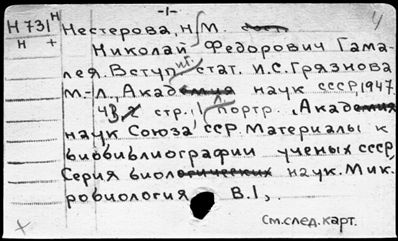 -1-
Н731 н Нестерова, Н.М.
н + Николай Федорович Гама-
лея. Вступит. стат. И.С. Грязнова
М.-Л., Академия наук СССР, 1947.
43 стр., 1 л. портр., (Академия
наук Союза ССР. Материалы к
биобиблиографии ученых СССР,
Серия биологических наук. Мик-
робиология В.1,
См.след.карт.